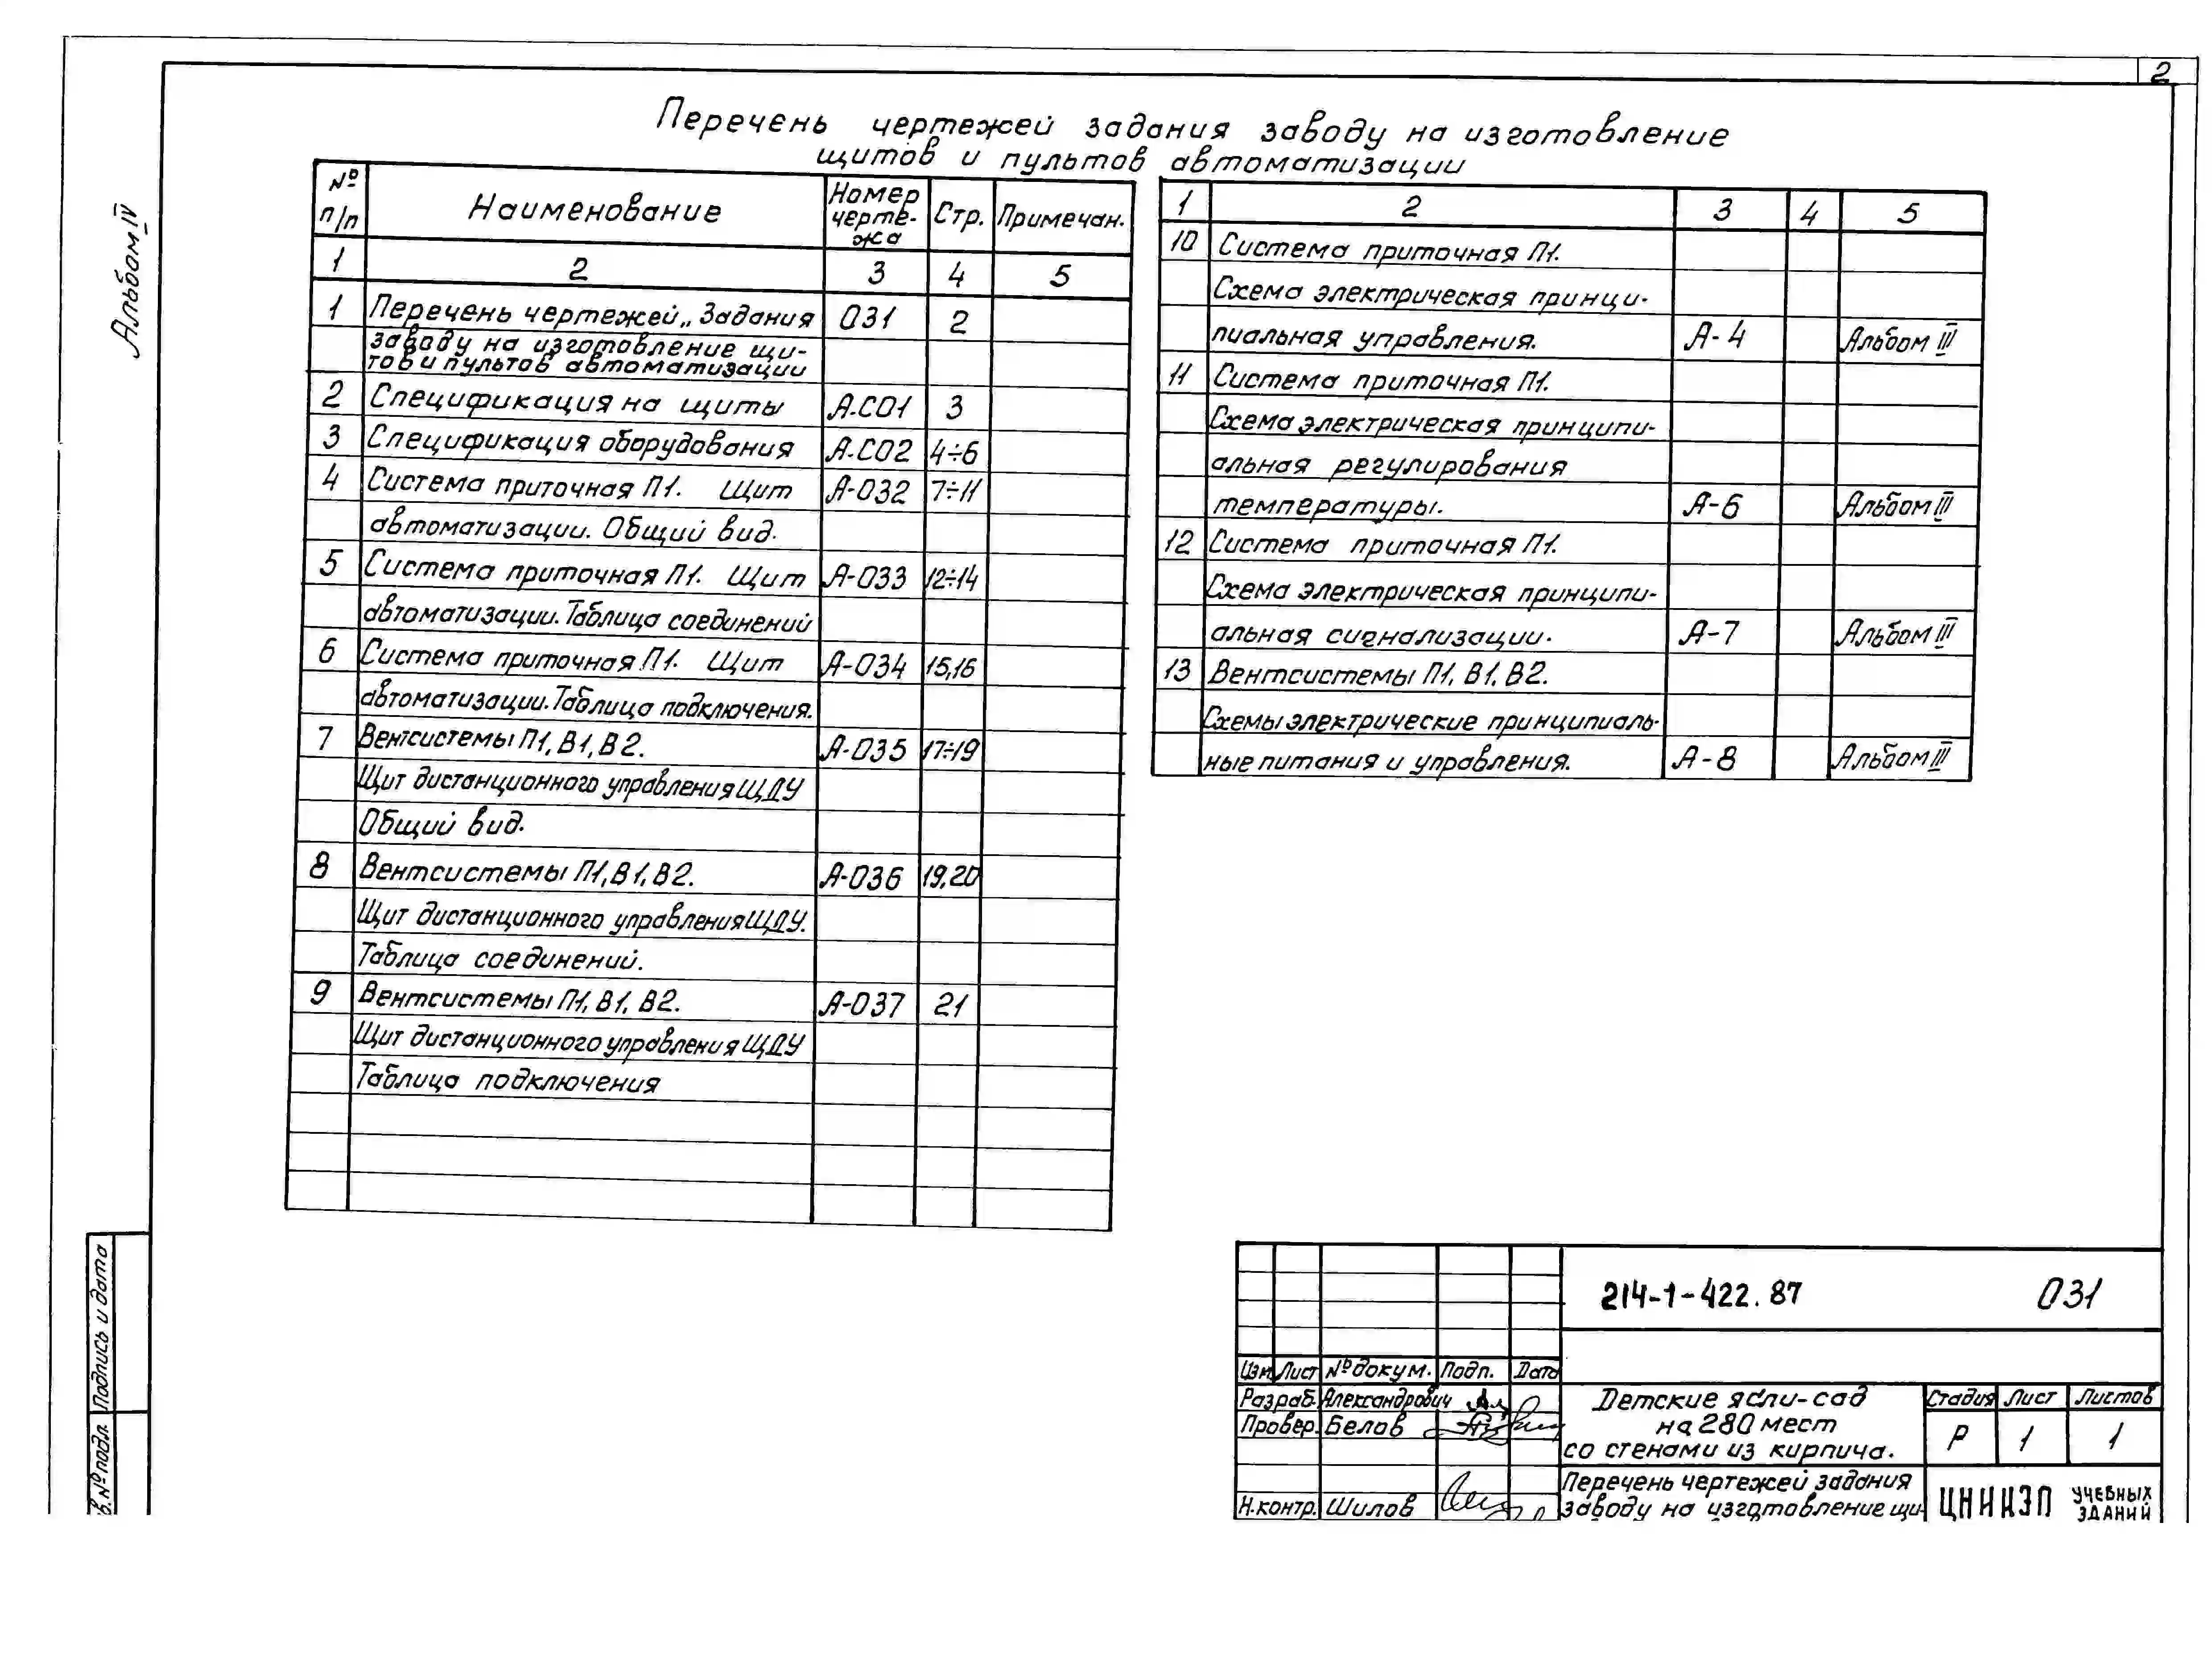 2
Альбом IV
Перечень чертежей задания заводу на изготовление
щитов и пультов автоматизации
№ п/п Наименование Номер черте-жа Стр. Примечан.
1 2 3 4 5
1 Перечень чертежей „Задания 031 2
заводу на изготовление щи-
тов и пультов автоматизации
2 Спецификация на щиты А-СО1 3
3 Спецификация оборудования А-СО2 4÷6
4 Система приточная П1. Щит А-032 7÷11
автоматизации. Общий вид.
5 Система приточная П1. Щит А-033 12÷14
автоматизации. Таблица соединений
6 Система приточная П1. Щит А-034 15,16
автоматизации. Таблица подключения.
7 Вентсистемы П1, В1, В2. А-035 17÷19
Щит дистанционного управления ЩДУ
Общий вид.
8 Вентсистемы П1, В1, В2. А-036 19,20
Щит дистанционного управления ЩДУ.
Таблица соединений.
9 Вентсистемы П1, В1, В2. А-037 21
Щит дистанционного управления ЩДУ
Таблица подключения
1 2 3 4 5
10 Система приточная П1.
Схема электрическая принци-
пиальная управления. А-4 Альбом III
11 Система приточная П1.
Схема электрическая принципи-
альная регулирования
температуры. А-6 Альбом III
12 Система приточная П1.
Схема электрическая принципи-
альная сигнализации. А-7 Альбом III
13 Вентсистемы П1, В1, В2.
Схемы электрические принципиаль-
ные питания и управления. А-8 Альбом III
Подпись и дата
в. № подл
214-1-422.87 031
Изм Лист № докум. Подп. Дата
Разраб. Александрович
Провер. Белов
Н.контр. Шилов
Детские ясли-сад
на 280 мест
со стенами из кирпича.
Стадия Лист Листов
Р 1 1
Перечень чертежей задания
заводу на изготовление щи-
ЦНИИЭП УЧЕБНЫХ
ЗДАНИЙ